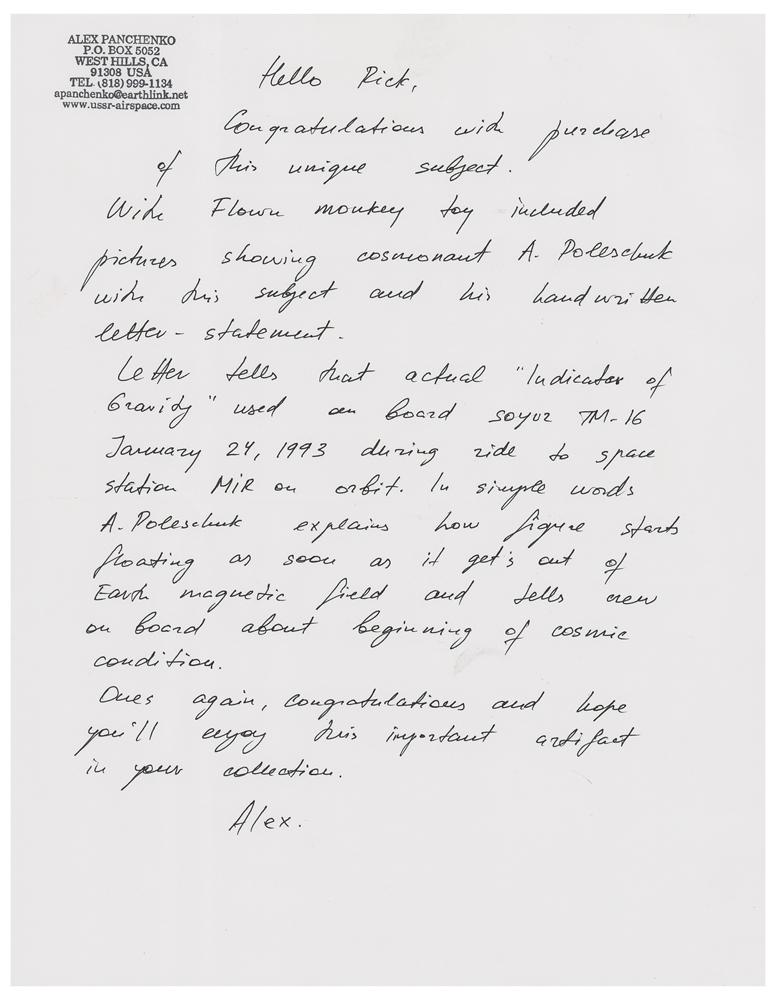 ALEX PANCHENKO
P.O. BOX 5052
WEST HILLS, CA
91308 USA
TEL. (818) 999-1134
apanchenko@earthlink.net
www.ussr-airspace.com
Hello Rick,
Congratulations with purchase
of this unique subject.
With Flown monkey toy included
pictures showing cosmonaut A. Poleschuk
with this subject and his handwritten
letter - statement.
Letter tells that actual "Indicator of
Gravity" used on board soyuz TM-16
January 24, 1993 during ride to space
station MIR on orbit. In simple words
A. Poleschuk explains how figure starts
floating as soon as it get's out of
Earth magnetic field and tells crew
on board about beginning of cosmic
condition.
Ones again, congratulations and hope
you'll enjoy this important artifact
in your collection.
Alex.